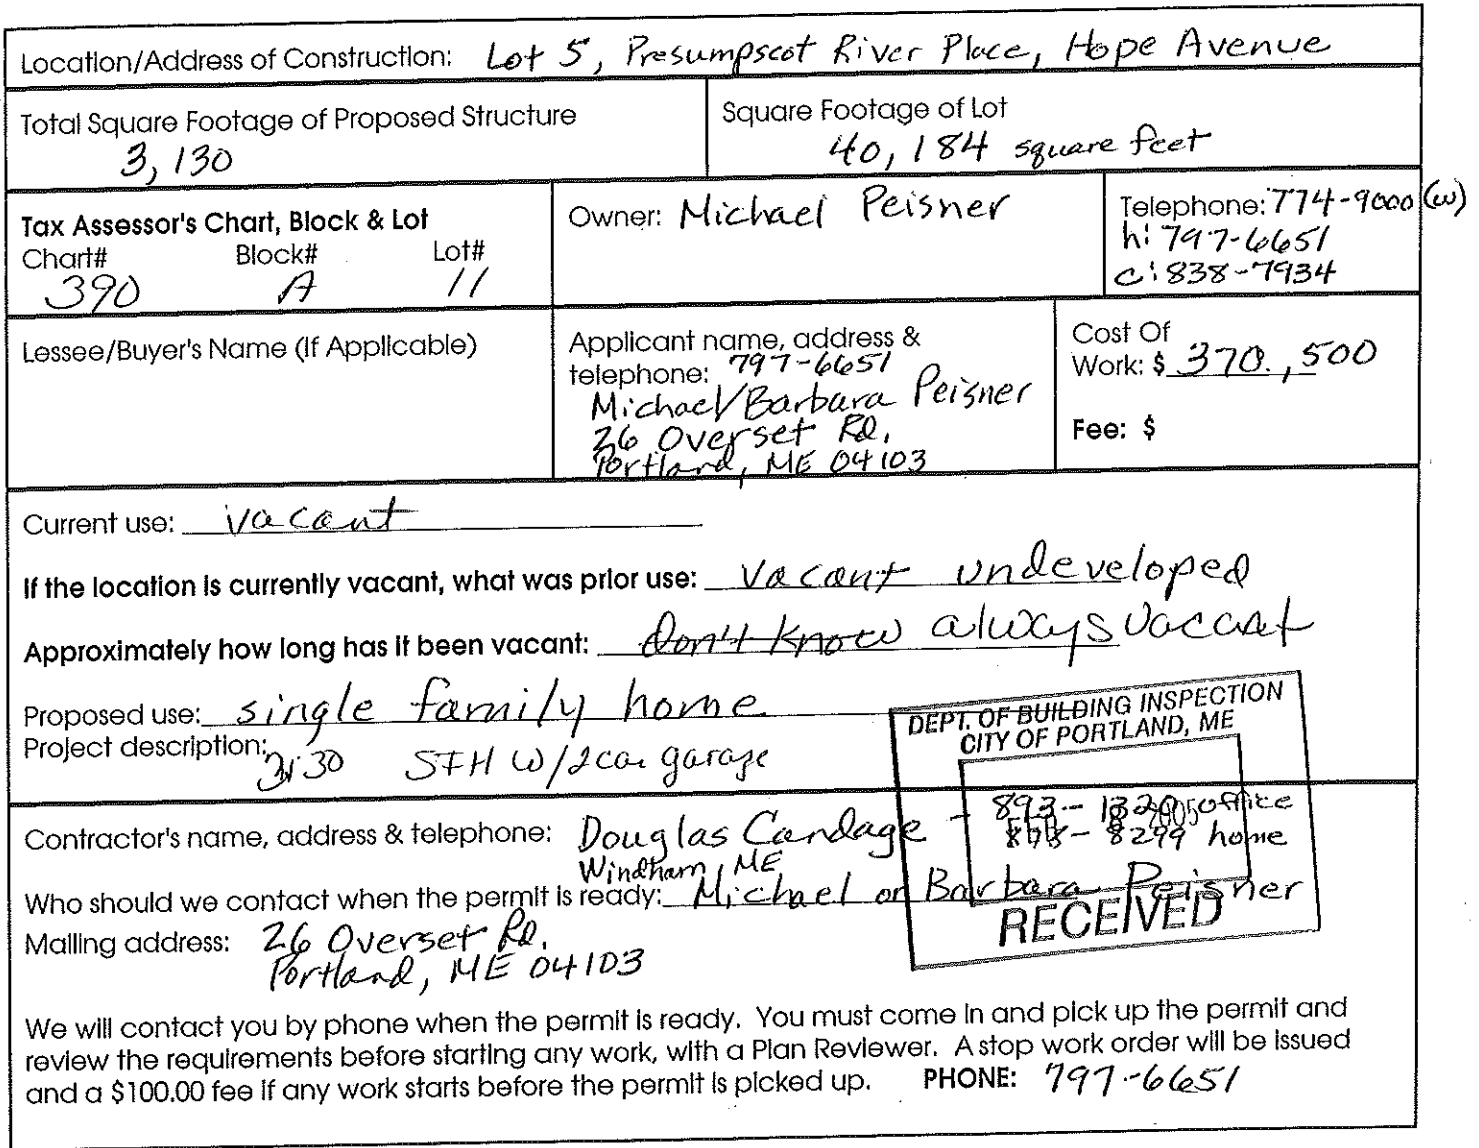 Location/Address of Construction: Lot 5, Presumpscot River Place, Hope Avenue
Total Square Footage of Proposed Structure
3,130
Square Footage of Lot
40,184 square feet
Tax Assessor's Chart, Block & Lot
Chart# Block# Lot#
390 A 11
Owner: Michael Peisner
Telephone: 774-9000 (w)
h: 797-6651
c: 838-7934
Lessee/Buyer's Name (If Applicable)
Applicant name, address &
telephone: 797-6651
Michael/Barbara Peisner
26 Overset Rd.
Portland, ME 04103
Cost Of
Work: $ 370,500
Fee: $
Current use: vacant
If the location is currently vacant, what was prior use: vacant undeveloped
Approximately how long has it been vacant: don't know always vacant
Proposed use: single family home
Project description:
3130 SFH W/2 car garage
DEPT. OF BUILDING INSPECTION
CITY OF PORTLAND, ME
2005
RECEIVED
Contractor's name, address & telephone: Douglas Candage - 893-1320 office
Windham, ME 878-8299 home
Who should we contact when the permit is ready: Michael or Barbara Peisner
Mailing address: 26 Overset Rd.
Portland, ME 04103
We will contact you by phone when the permit is ready. You must come in and pick up the permit and
review the requirements before starting any work, with a Plan Reviewer. A stop work order will be issued
and a $100.00 fee if any work starts before the permit is picked up. PHONE: 797-6651